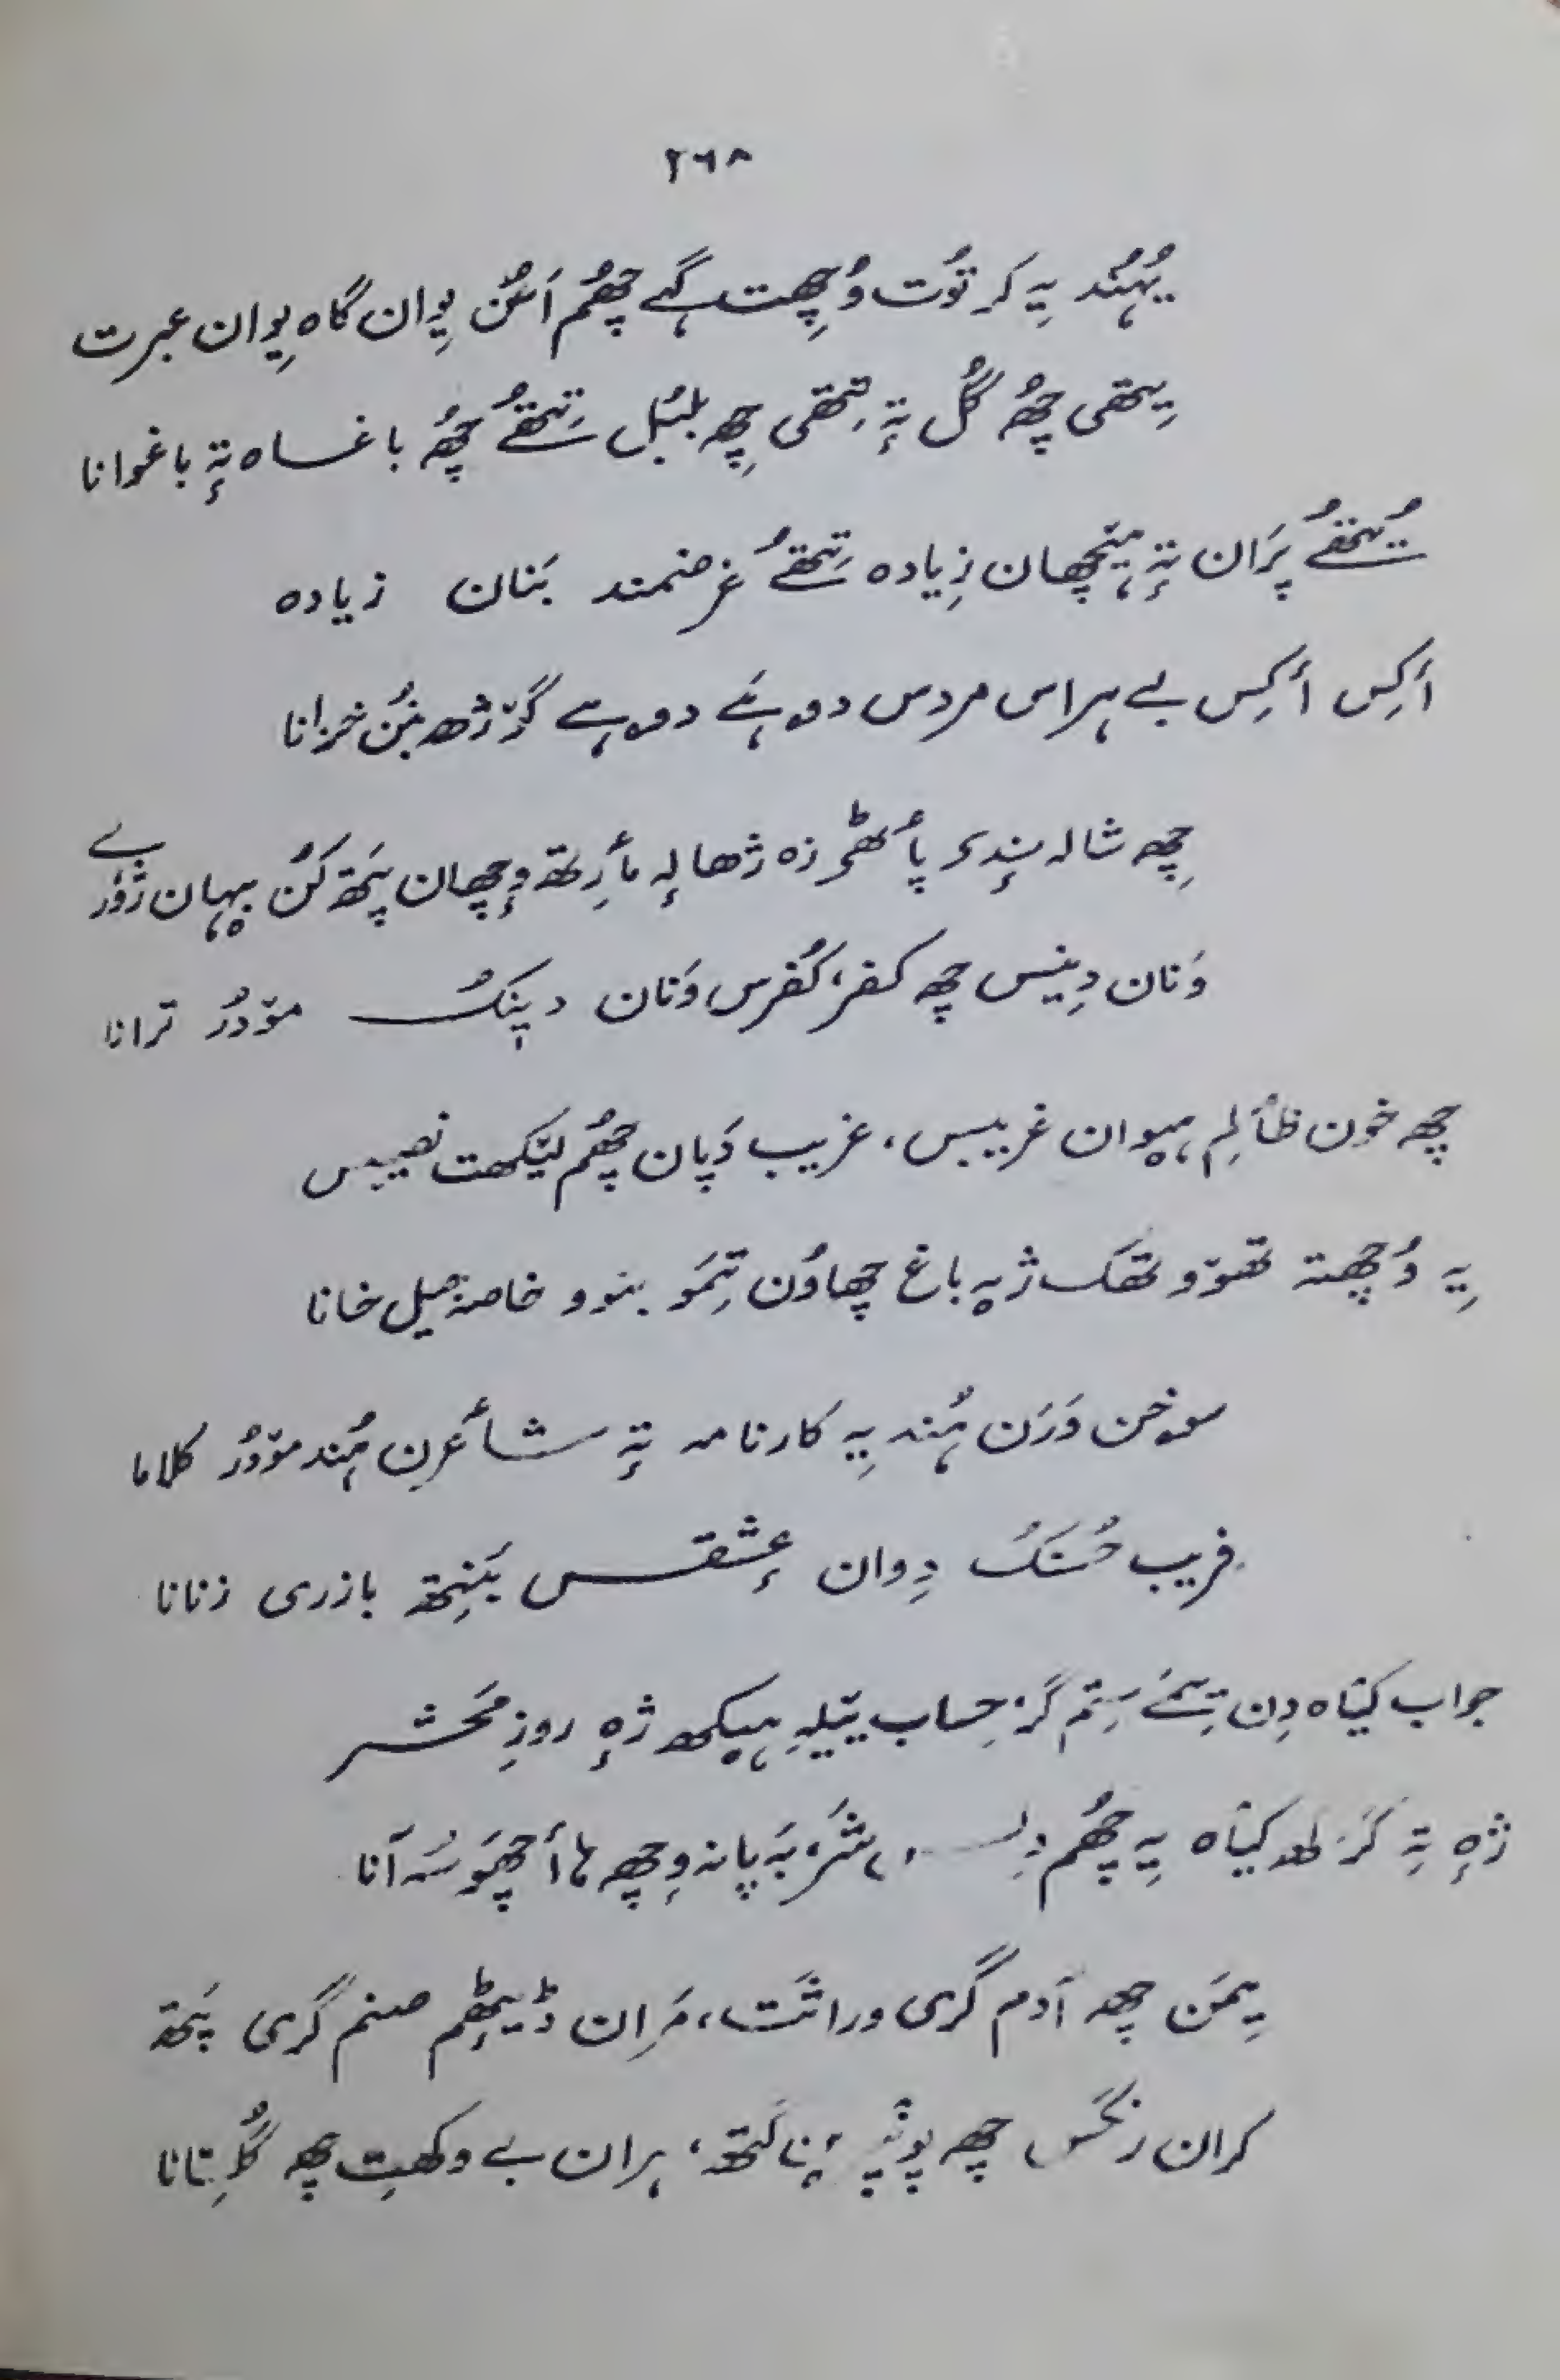 ۲٦۸
یُہُنٛد یہِ کَرتوٗت وُچِھت گہے چُھم اَسُن یِوان گاہ یِوان عبرت
یِتھی چُھ گُل تہٕ تِتھی چِھ بلبُل تِیُتھے چُھ باغساہ تہٕ باغوانا
یُیتھے پَران تہٕ ہیٚچھان زِیادہ تِیُتھے غرضمند بَنان زیادہ
أکِس أکِس بے ہراس مردس دۄہے دۄہے گۆژھ بَنُن خزانا
چِھ شالہ بٕندۍ پأٹھۍ زہ ژھالہٕ مأرِتھ وٕچھان پَتھ کُن بیہان ژوٗرے
وَنان دِینس چھ کفر، کُفرس وَنان دینک مۆدُر ترانا
چھ خون ظألِم ہیوان غریبس، غریب دَپان چُھم لیٚکھت نصیبس
یہِ وُچھتہ تھوٚو تھَکہ ژیہِ باغ چھاوُن تِمَو بنوو خاصہٕ جیل خانا
سۄخن وَرَن ہُند یہِ کارنامہ تہٕ شأعرن ہُند مۆدُر کلاما
فریب حُسنَکُ دِوان عٕشقس بَنِتھ بازری زنانا
جواب کیٛاہ دِن تِمے سِتَم گَر حِساب ییٚلہِ ہیکھ ژہٕ روزِ محشر
ژہٕ تہِ کَرکھ کیٛاہ یہِ چُھم دِلس، شَر بَہ پانہ وِچھ ہا أچھَو سُہ آنا
یِمَن چھ آدم گری وراثت، مَران ڈیٖٹھِم صنم گری پَتھ
کران چھ پنانۍ، ہران بے وکھتِ چھ گُلِستانا